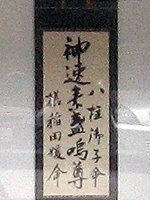 八柱御子命
神速素盞嗚尊
櫛稲田媛命